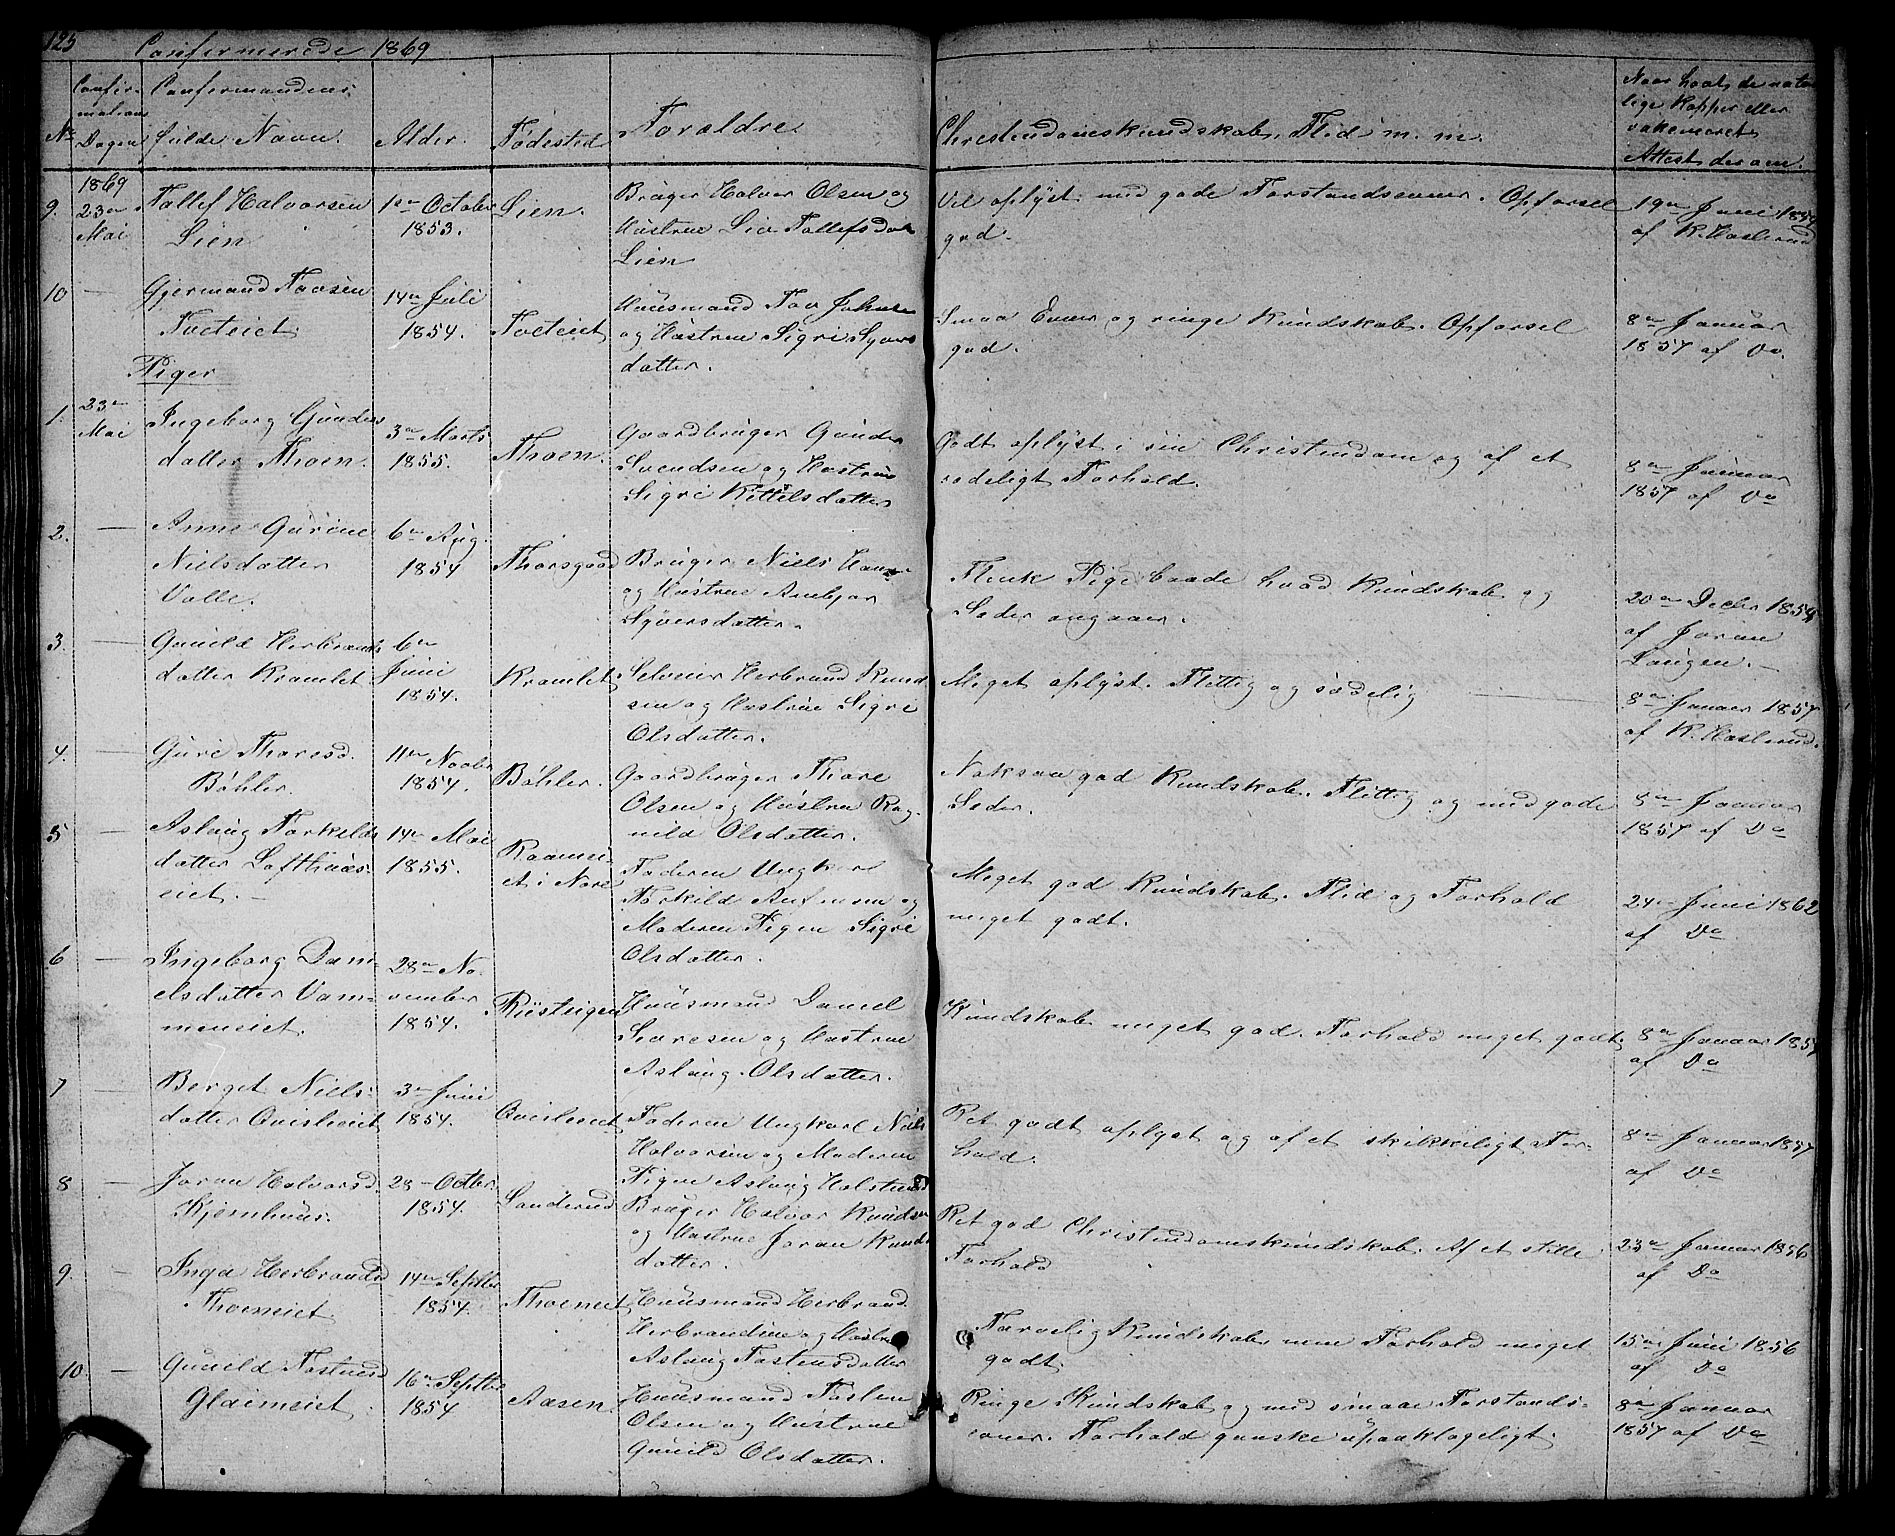 125 Confirmerede 1869
No
Confir-
mations
Dagen
Confirmandens
fulde Navn.
Alder.
Fødested
Forældre.
Christendomskundskab, Flid m. m.
Naar havt de natur
lige Kopper eller
vakcineret
Attest derom.
9.
1869
23de
Mai
Tollef Halvorsen
Lien
1ste October
1853.
Lien.
Bruger Halvor Olsen og
Hustrue Liv Tollefsdat
Lien
Vel oplyst med gode Forstandsevner. Opførsel
god.
19de Juni 1854
af K. Haslerud
10 —
Gjermund Toosen
Toeteiet.
14de Juli
1854.
Toeteiet
Huusmand Too Johnsen
og Hustrue Sigri Syvers
datter.
Smaa Evner og ringe Kundskab. Opførsel
god.
8de Januar
1857 af Do.
Piger
1.
23de
Mai
Ingeborg Gunders
datter Thoen.
3de Marts
1855.
Thoen.
Gaardbruger Gunder
Svendsen og Hustrue
Sigri Kittelsdatter
Godt oplyst i sin Christendom og af et
sædeligt Forhold.
8de Januar
1857 af Do
2. —
Anne Gurine
Nielsdatter
Valle.
6te Aug.
1854
Thorsgaad
Bruger Niels Hans
og Hustrue Anbjør
Syversdatter.
Flink Pige baade hvad Kundskab og
Seder angaaer.
20de Decbr 1854
af Joran
Laugen. —
3. —
Gunild Herbrands
datter Kramlet
6te
Juni
1854.
Kramlet
Selveier Herbrand Knud
sen og Hustrue Sigri
Olsdatter.
Meget oplyst. Flittig og sædelig —
8de Januar 1857
af K. Haslerud.
4. —
Guri Thoresd.
Bøhler.
11te Novbr
1854.
Bøhler.
Gaardbruger Thore
Olsen og Hustrue Rag
nild Olsdatter.
Noksaa god Kundskab. Flittig og med gode
Seder.
8de Januar
1857 af Do
5 —
Aslaug Torkilds
datter Lofthuus-
eiet. —
14de Mai
1855.
i Nore
Faderen Ungkarl
Torkild og
Moderen Pigen Sigri
Olsdatter.
Meget god Kundskab. Flid og Forhold
meget godt.
24de Juni 1862
af Do
6 —
Ingeborg Dani-
elsdatter Vam-
meneiet.
28de No-
vember
1854.
Rusteigen
Huusmand Daniel
Soresen og Hustrue
Aslaug Olsdatter.
Kundskab meget god. Forhold meget godt.
8de Januar 1857
af Do
7 —
Berget Niels-
datter Qvisleiet
3de Juni
1854.
Qvisleiet
Faderen Ungkarl Niels
Halvorsen og Moderen
Pigen Aslaug Holstensd
Ret godt oplyst og af et skikkeligt For-
hold.
8de Januar 1857
af Do
8 —
Joran Halvorsd.
Kjemhuus.
23 — Octbr.
1854.
Sønderud
Bruger Halvor Knudsen
og Hustrue Joran Knuds
datter.
Ret god Christendomskundskab. Af et stille
Forhold
23de Januar 1856
af Do
9. —
Inga Herbrandsd
Thoeneiet
14de Septbr
1854.
Thoeneiet
Huusmand Herbrand
Herbrandsen og Hustr
Aslaug Tostensdatter
Tarvelig Kundskab, men Forhold meget
godt.
15de Juni 1856
af Do
10. —
Gunild Tostensd
Gloimeiet.
16de Septbr
1854
Aasen.
Huusmand Tosten
Olsen og Hustrue
Gunild Olsdatter.
Ringe Kundskab og med smaae Forstands-
evner. Forhold ganske upaaklageligt.
8de Januar
1857 af Do